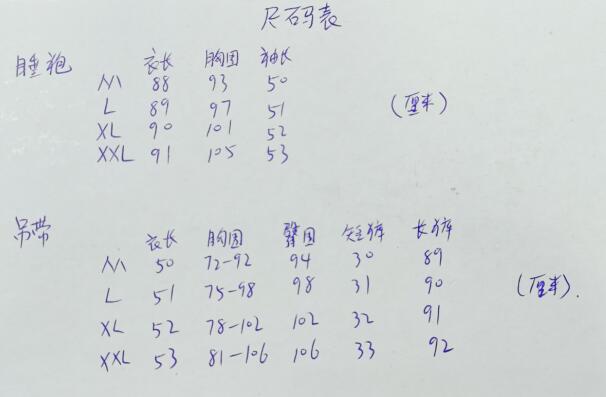 尺码表
睡袍
衣长 胸围 袖长
M 88 93 50
L 89 97 51
(厘米)
XL 90 101 52
XXL 91 105 53
吊带
衣长 胸围 臀围 短裤 长裤
M 50 72-92 94 30 89
L 51 75-98 98 31 90
(厘米).
XL 52 78-102 102 32 91
XXL 53 81-106 106 33 92